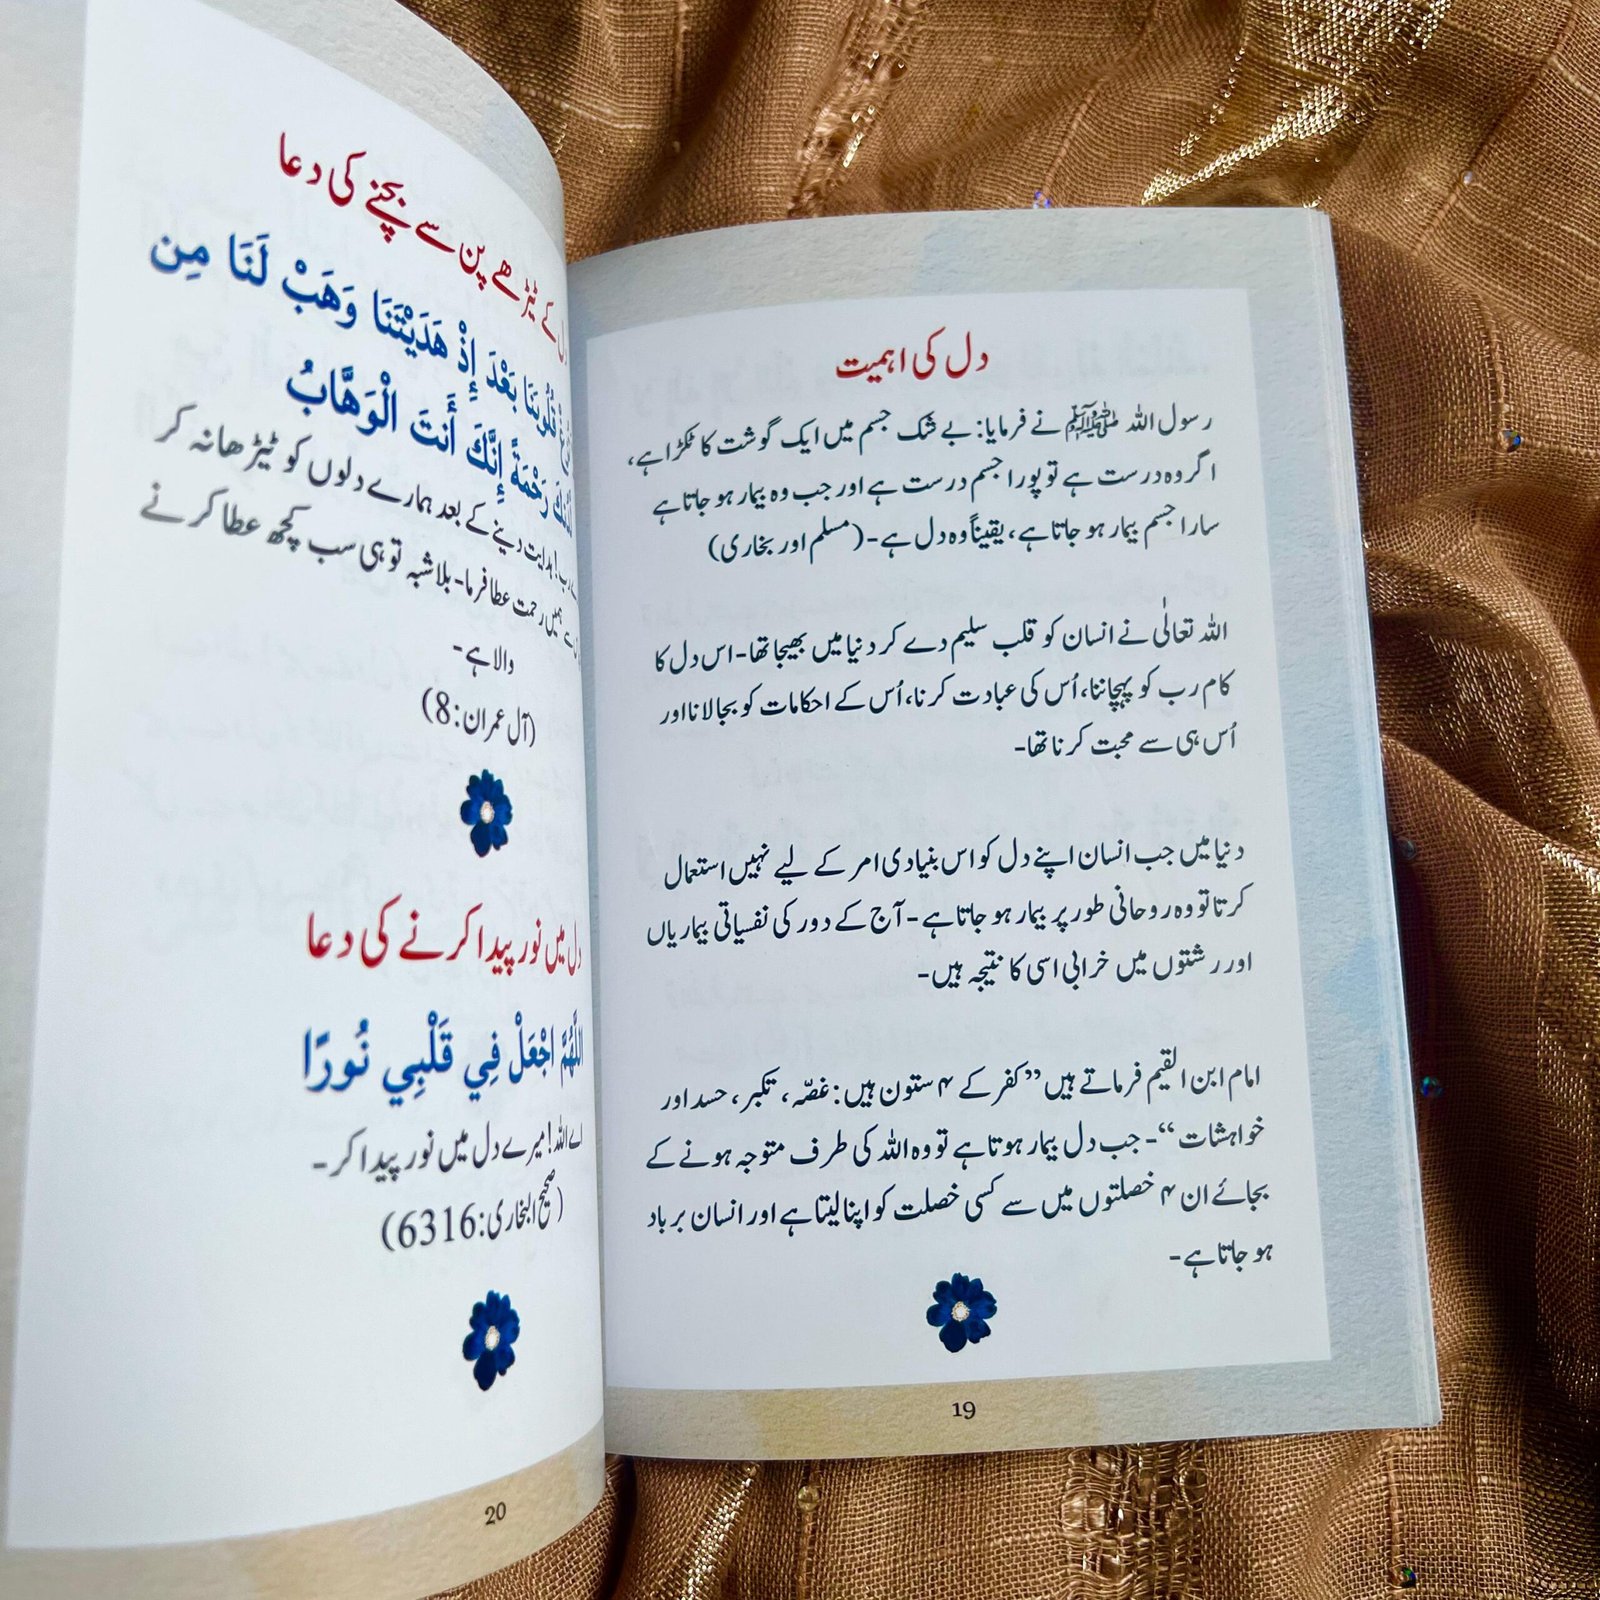 دل کی اہمیت
رسول اللہ ﷺ نے فرمایا: بے شک جسم میں ایک گوشت کا ٹکڑا ہے،
اگر وہ درست ہے تو پورا جسم درست ہے اور جب وہ بیمار ہو جاتا ہے
سارا جسم بیمار ہو جاتا ہے، یقیناً وہ دل ہے- (مسلم اور بخاری)
اللہ تعالٰی نے انسان کو قلب سلیم دے کر دنیا میں بھیجا تھا- اس دل کا
کام رب کو پہچاننا، اُس کی عبادت کرنا، اُس کے احکامات کو بجا لانا اور
اُس ہی سے محبت کرنا تھا-
دنیا میں جب انسان اپنے دل کو اس بنیادی امر کے لیے نہیں استعمال
کرتا تو وہ روحانی طور پر بیمار ہو جاتا ہے- آج کے دور کی نفسیاتی بیماریاں
اور رشتوں میں خرابی اسی کا نتیجہ ہیں-
امام ابن القیم فرماتے ہیں ”کفر کے ۴ ستون ہیں: غصّہ، تکبر، حسد اور
خواہشات“- جب دل بیمار ہوتا ہے تو وہ اللہ کی طرف متوجہ ہونے کے
بجائے ان ۴ خصلتوں میں سے کسی خصلت کو اپنا لیتا ہے اور انسان برباد
ہو جاتا ہے-
19
کے ٹیڑھے پن سے بچنے کی دعا
قُلُوبَنَا بَعْدَ إِذْ هَدَيْتَنَا وَهَبْ لَنَا مِن
رَحْمَةً إِنَّكَ أَنتَ الْوَهَّابُ
ہدایت دینے کے بعد ہمارے دلوں کو ٹیڑھا نہ کر
ہمیں رحمت عطا فرما- بلاشبہ تو ہی سب کچھ عطا کرنے
والا ہے-
(آل عمران:8)
دل میں نور پیدا کرنے کی دعا
اللَّهُمَّ اجْعَلْ فِي قَلْبِي نُورًا
اے اللہ! میرے دل میں نور پیدا کر-
(صحیح البخاری:6316)
20